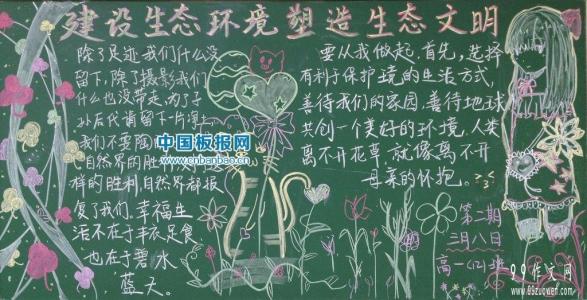 建设生态环境塑造生态文明
除了足迹我们什么没
留下，除了摄影我们
什么也没带走，为了子
孙后代肯留下一片净土
我们不要陶
自然界的胜
样的胜利，自然界都报
复了我们。幸福生
活不在于丰衣足食
也在于碧水
蓝天。
要从我做起，首先，选择
有利于保护环境的生活方式，
善待我们的家园，善待地球
共创一个美好的环境，人类
离不开花草，就像离不开
母亲的怀抱。
第二期
三月八日
高一(12)班
中国板报网
www.cnbanbao.cn
99作文网
www.99zuowen.com